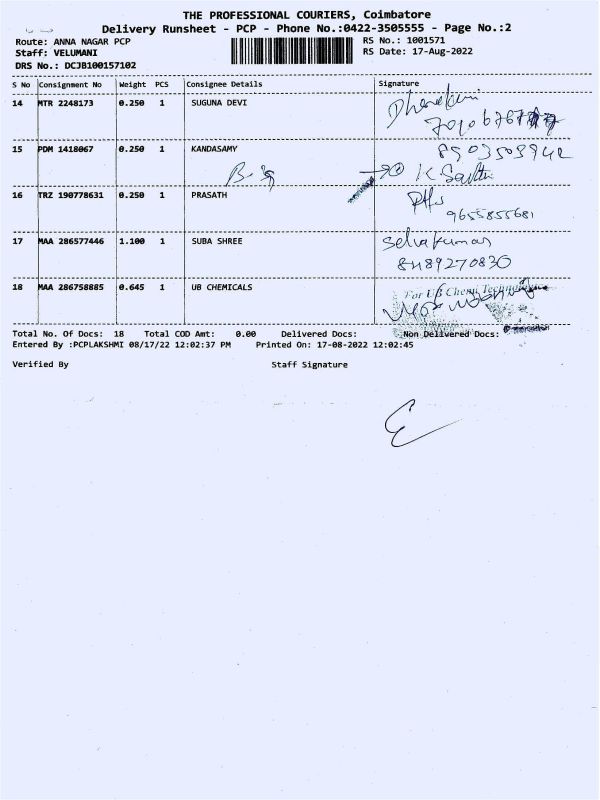 THE PROFESSIONAL COURIERS, Coimbatore
Delivery Runsheet - PCP - Phone No.:0422-3505555 - Page No.:2
Route: ANNA NAGAR PCP RS No.: 1001571
Staff: VELUMANI RS Date: 17-Aug-2022
DRS No.: DCJB100157102
S No Consignment No Weight PCS Consignee Details Signature
14 MTR 2248173 0.250 1 SUGUNA DEVI
15 PDM 1418067 0.250 1 KANDASAMY 8903509942
16 TRZ 190778631 0.250 1 PRASATH
9655855681
17 MAA 286577446 1.100 1 SUBA SHREE Selvakumar
8489270830
18 MAA 286758885 0.645 1 UB CHEMICALS For UB Chem Technology
Total No. Of Docs: 18 Total COD Amt: 0.00 Delivered Docs: Non Delivered Docs:
Entered By :PCPLAKSHMI 08/17/22 12:02:37 PM Printed On: 17-08-2022 12:02:45
Verified By Staff Signature